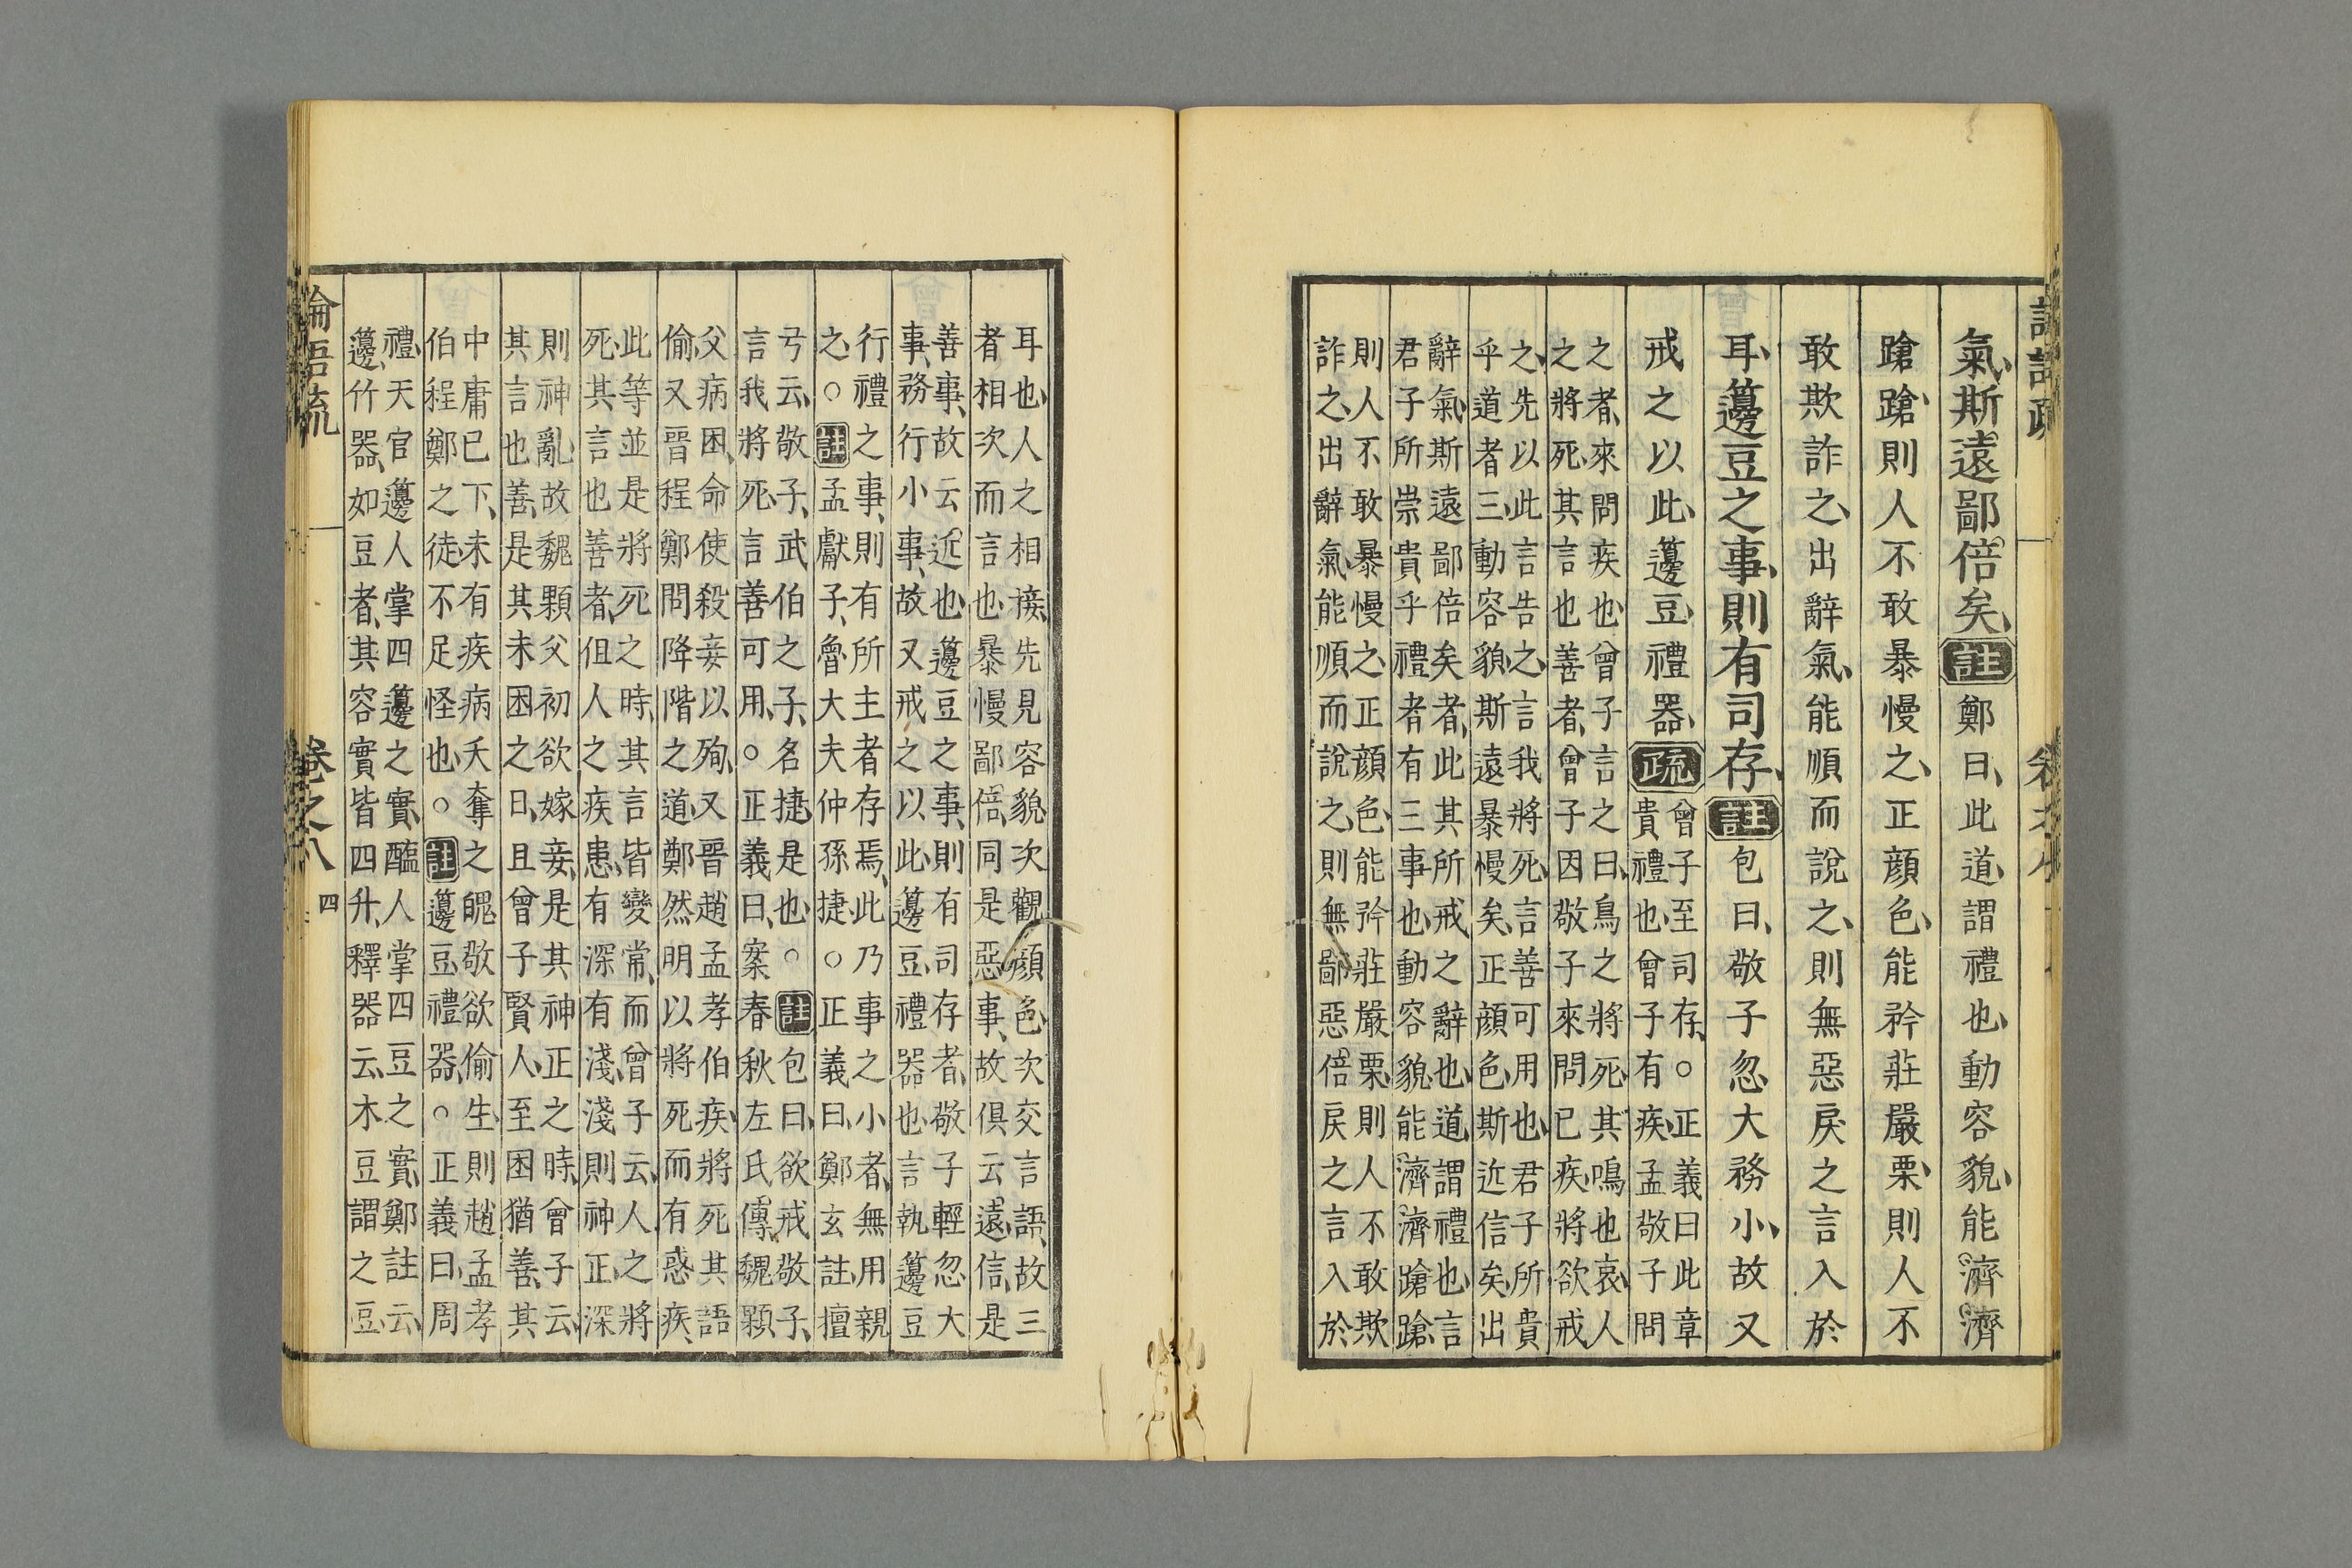 氣、斯遠鄙倍矣、註鄭曰、此道、謂禮也、動容貌、能濟濟
蹌蹌、則人不敢暴慢之、正顔色、能矜莊嚴栗、則人不
敢欺詐之、出辭氣、能順而說之、則無惡戾之言入於
耳、籩豆之事、則有司存、註包曰、敬子忽大務小、故又
戒之以此、籩豆、禮器、疏
曾子至司存、○正義曰此章
貴禮也、曾子有疾、孟敬子問
之者、來問疾也、曾子言之曰、鳥之將死、其鳴也哀、人
之將死、其言也善者、曾子因敬子來問已疾、將欲戒
之、先以此言告之、言我將死、言善可用也、君子所貴
乎道者三、動容貌、斯遠暴慢矣、正顔色、斯近信矣、出
辭氣、斯遠鄙倍矣者、此其所戒之辭也、道、謂禮也、言
君子所崇貴乎禮者有三事也、動容貌、能濟濟蹌蹌、
則人不敢暴慢之、正顔色、能矜莊嚴栗、則人不敢欺
詐之、出辭氣、能順而說之、則無鄙惡倍戾之言入於
耳也、人之相接、先見容貌、次觀顔色、次交言語、故三
者相次而言也、暴慢鄙倍、同是惡事、故俱云遠、信、是
善事、故云近也、籩豆之事、則有司存者、敬子輕忽大
事、務行小事、故又戒之以此籩豆、禮器也、言執籩豆
行禮之事、則有所主者存焉、此乃事之小者、無用親
之、○註孟獻子、魯大夫仲孫捷、○正義曰、鄭玄註檀
弓云、敬子、武伯之子、名捷、是也、○註包曰、欲戒敬子、
言我將死、言善可用、○正義曰、案春秋左氏傳、魏顆
父病困、命使殺妾以殉、又晉趙孟孝伯疾、將死其語
偷、又晉程鄭問降階之道、鄭然明以將死而有惑疾、
此等並是將死之時、其言皆變常、而曾子云、人之將
死、其言也善者、但人之疾患、有深有淺、淺則神正、深
則神亂、故魏顆父初欲嫁妾、是其神正之時、曾子云、
其言也善、是其未困之日、且曾子賢人、至困猶善、其
中庸已下、未有疾病天奪之魄、敬欲偷生、則趙孟孝
伯程鄭之徒、不足怪也、○註籩豆、禮器、○正義曰、周
禮、天官籩人、掌四籩之實、醢人掌四豆之實、鄭註云、
籩、竹器、如豆者、其容實皆四升、釋器云、木豆謂之豆、
論語疏 卷之八 四